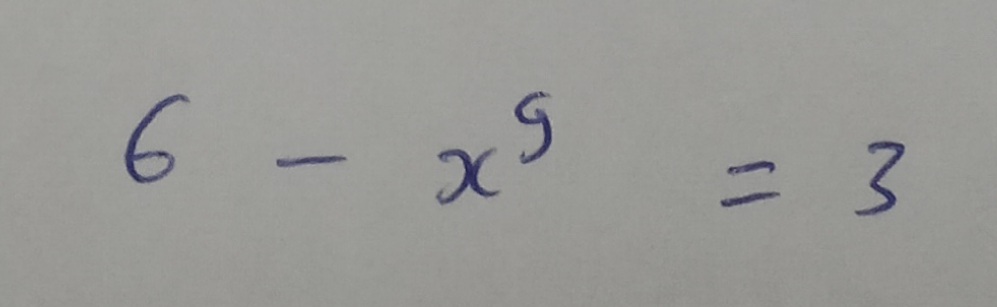 6 - x⁹ = 3